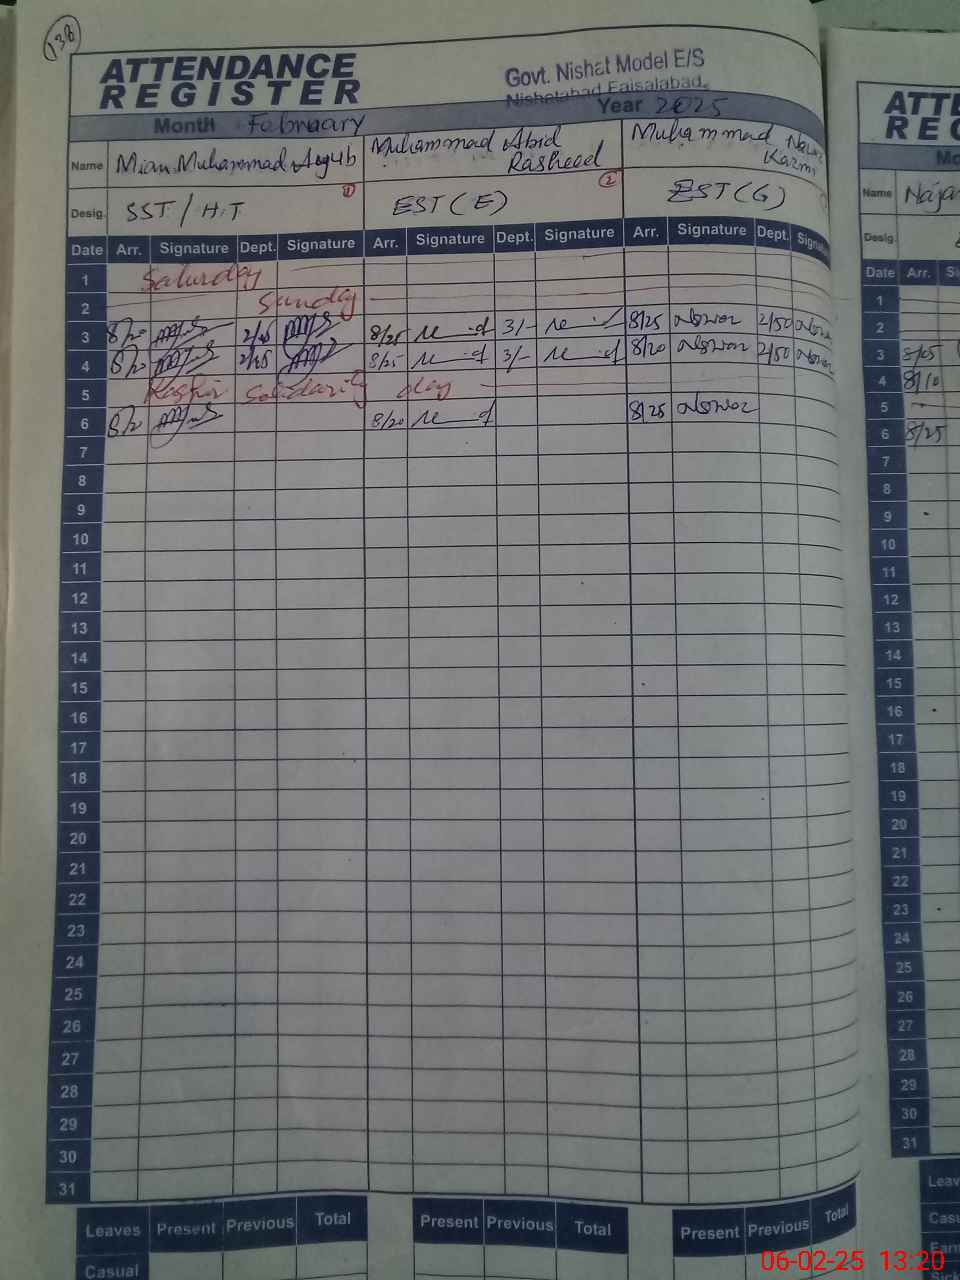 138
ATTENDANCE
REGISTER
Govt. Nishat Model E/S
Nishatabad Faisalabad.
Month February Year 2025
Name Mian Muhammad Ayyub Muhammad Abid Rasheed Muhammad Kazmi
1 2
Desig. SST / H.T EST (E) EST (G)
Date Arr. Signature Dept. Signature Arr. Signature Dept. Signature Arr. Signature Dept. Signature
1 Saturday
2 Sunday
3 8/20 2/45 8/25 3/- 8/25 2/50
4 8/20 2/45 8/25 3/- 8/20 2/50
5 Kashir solidarity day
6 8/20 8/20 8/25
7
8
9
10
11
12
13
14
15
16
17
18
19
20
21
22
23
24
25
26
27
28
29
30
31
Leaves Present Previous Total Present Previous Total Present Previous Total
Casual
ATTE
REG
Mo
Name
Desig.
Date Arr.
1
2
3 8/25
4 8/10
5
6 8/25
7
8
9
10
11
12
13
14
15
16
17
18
19
20
21
22
23
24
25
26
27
28
29
30
31
Leav
Casu
Earn
06-02-25 13:20